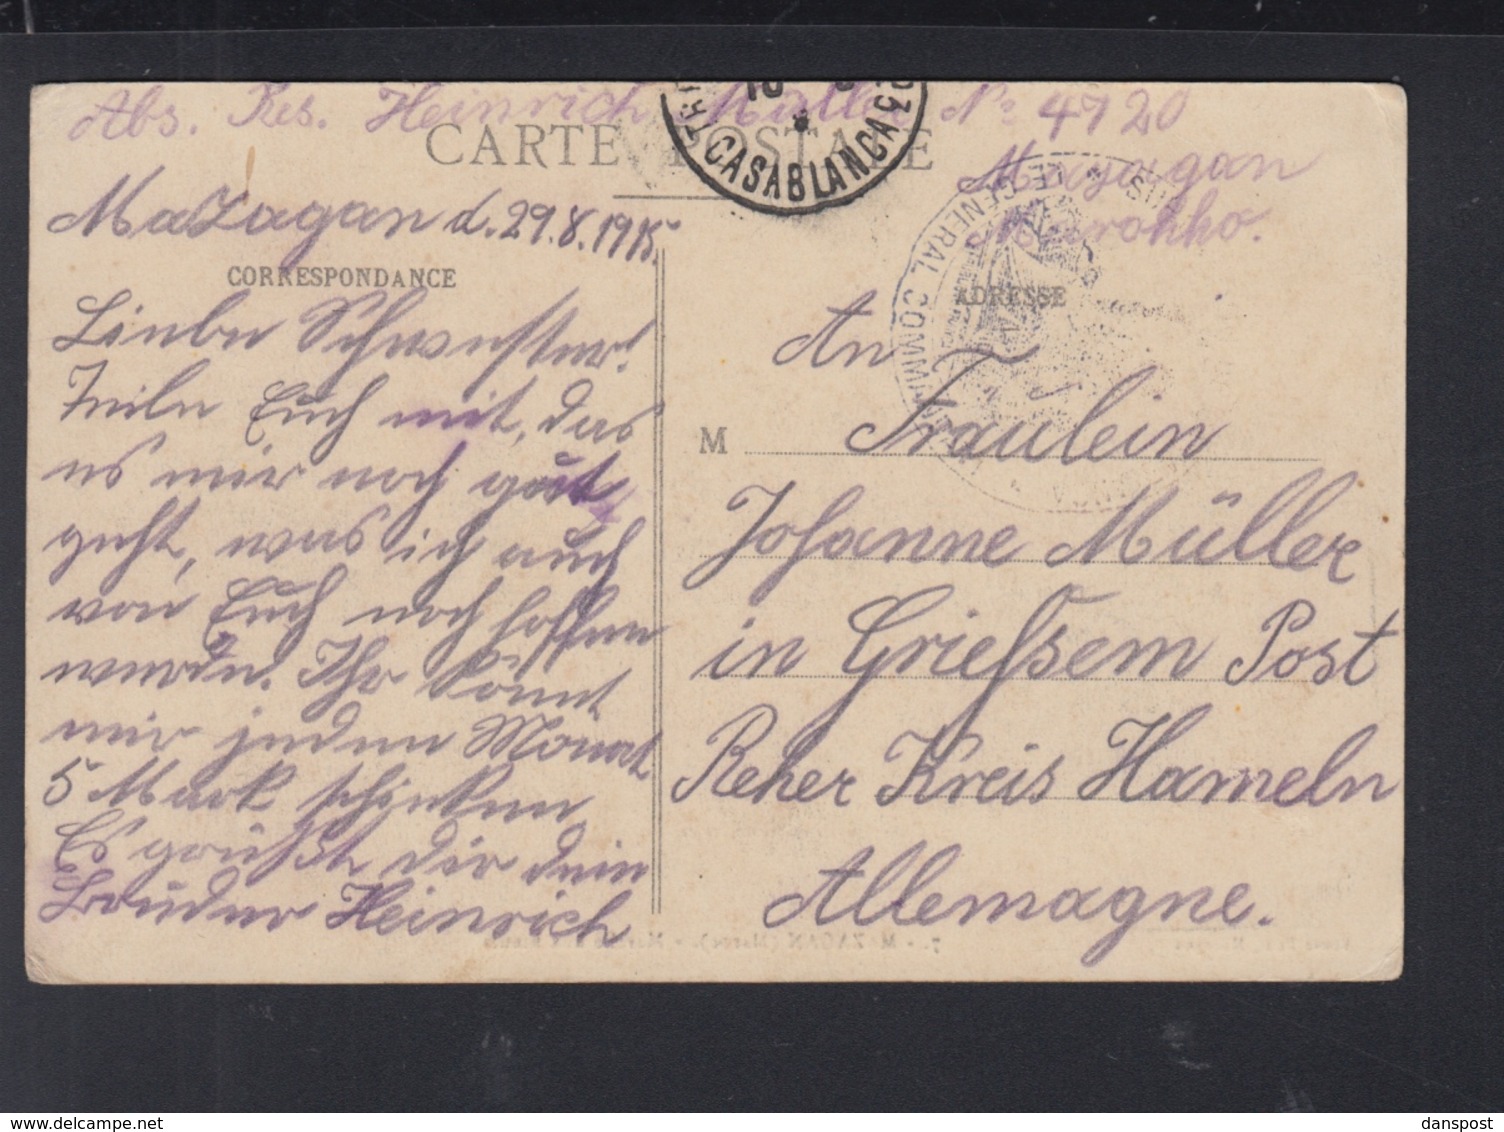 Abs. Res. Heinrich Müller No 4720
Mazagan
Marokko.
CARTE POSTALE
CASABLANCA
LE GENERAL COMM
Mazagan d. 29.8.1915.
CORRESPONDANCE
Liebe Schwester!
Teile Euch mit, das
es mir noch gut
geht, was ich auch
von Euch noch hoffen
werde. Ihr könnt
mir jeden Monat
5 Mark schicken
Es grüßt dir dein
Bruder Heinrich
ADRESSE
An
M Fräulein
Johanne Müller
in Grießem Post
Reher Kreis Hameln
Allemagne.
7. - MAZAGAN (Maroc). -
danspost